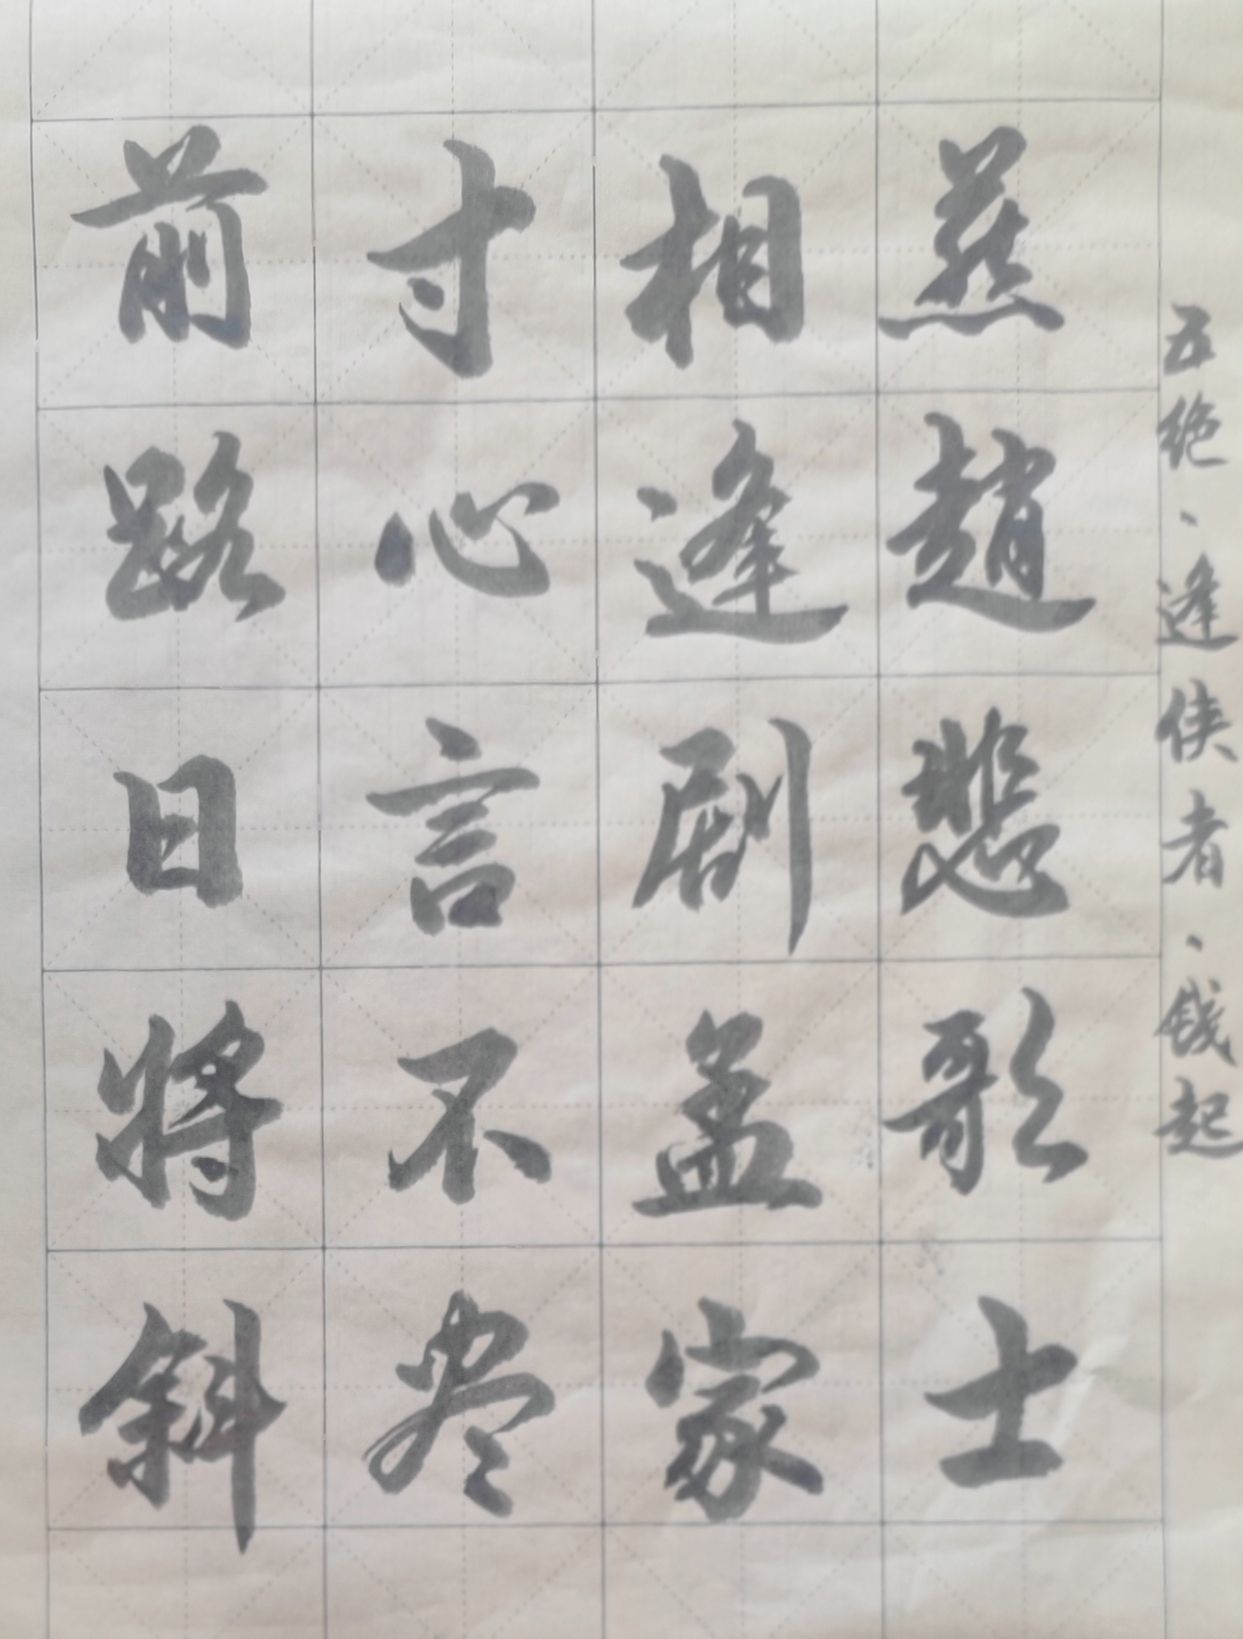 五绝、逢侠者、钱起
燕趙悲歌士
相逢剧孟家
寸心言不尽
前路日将斜